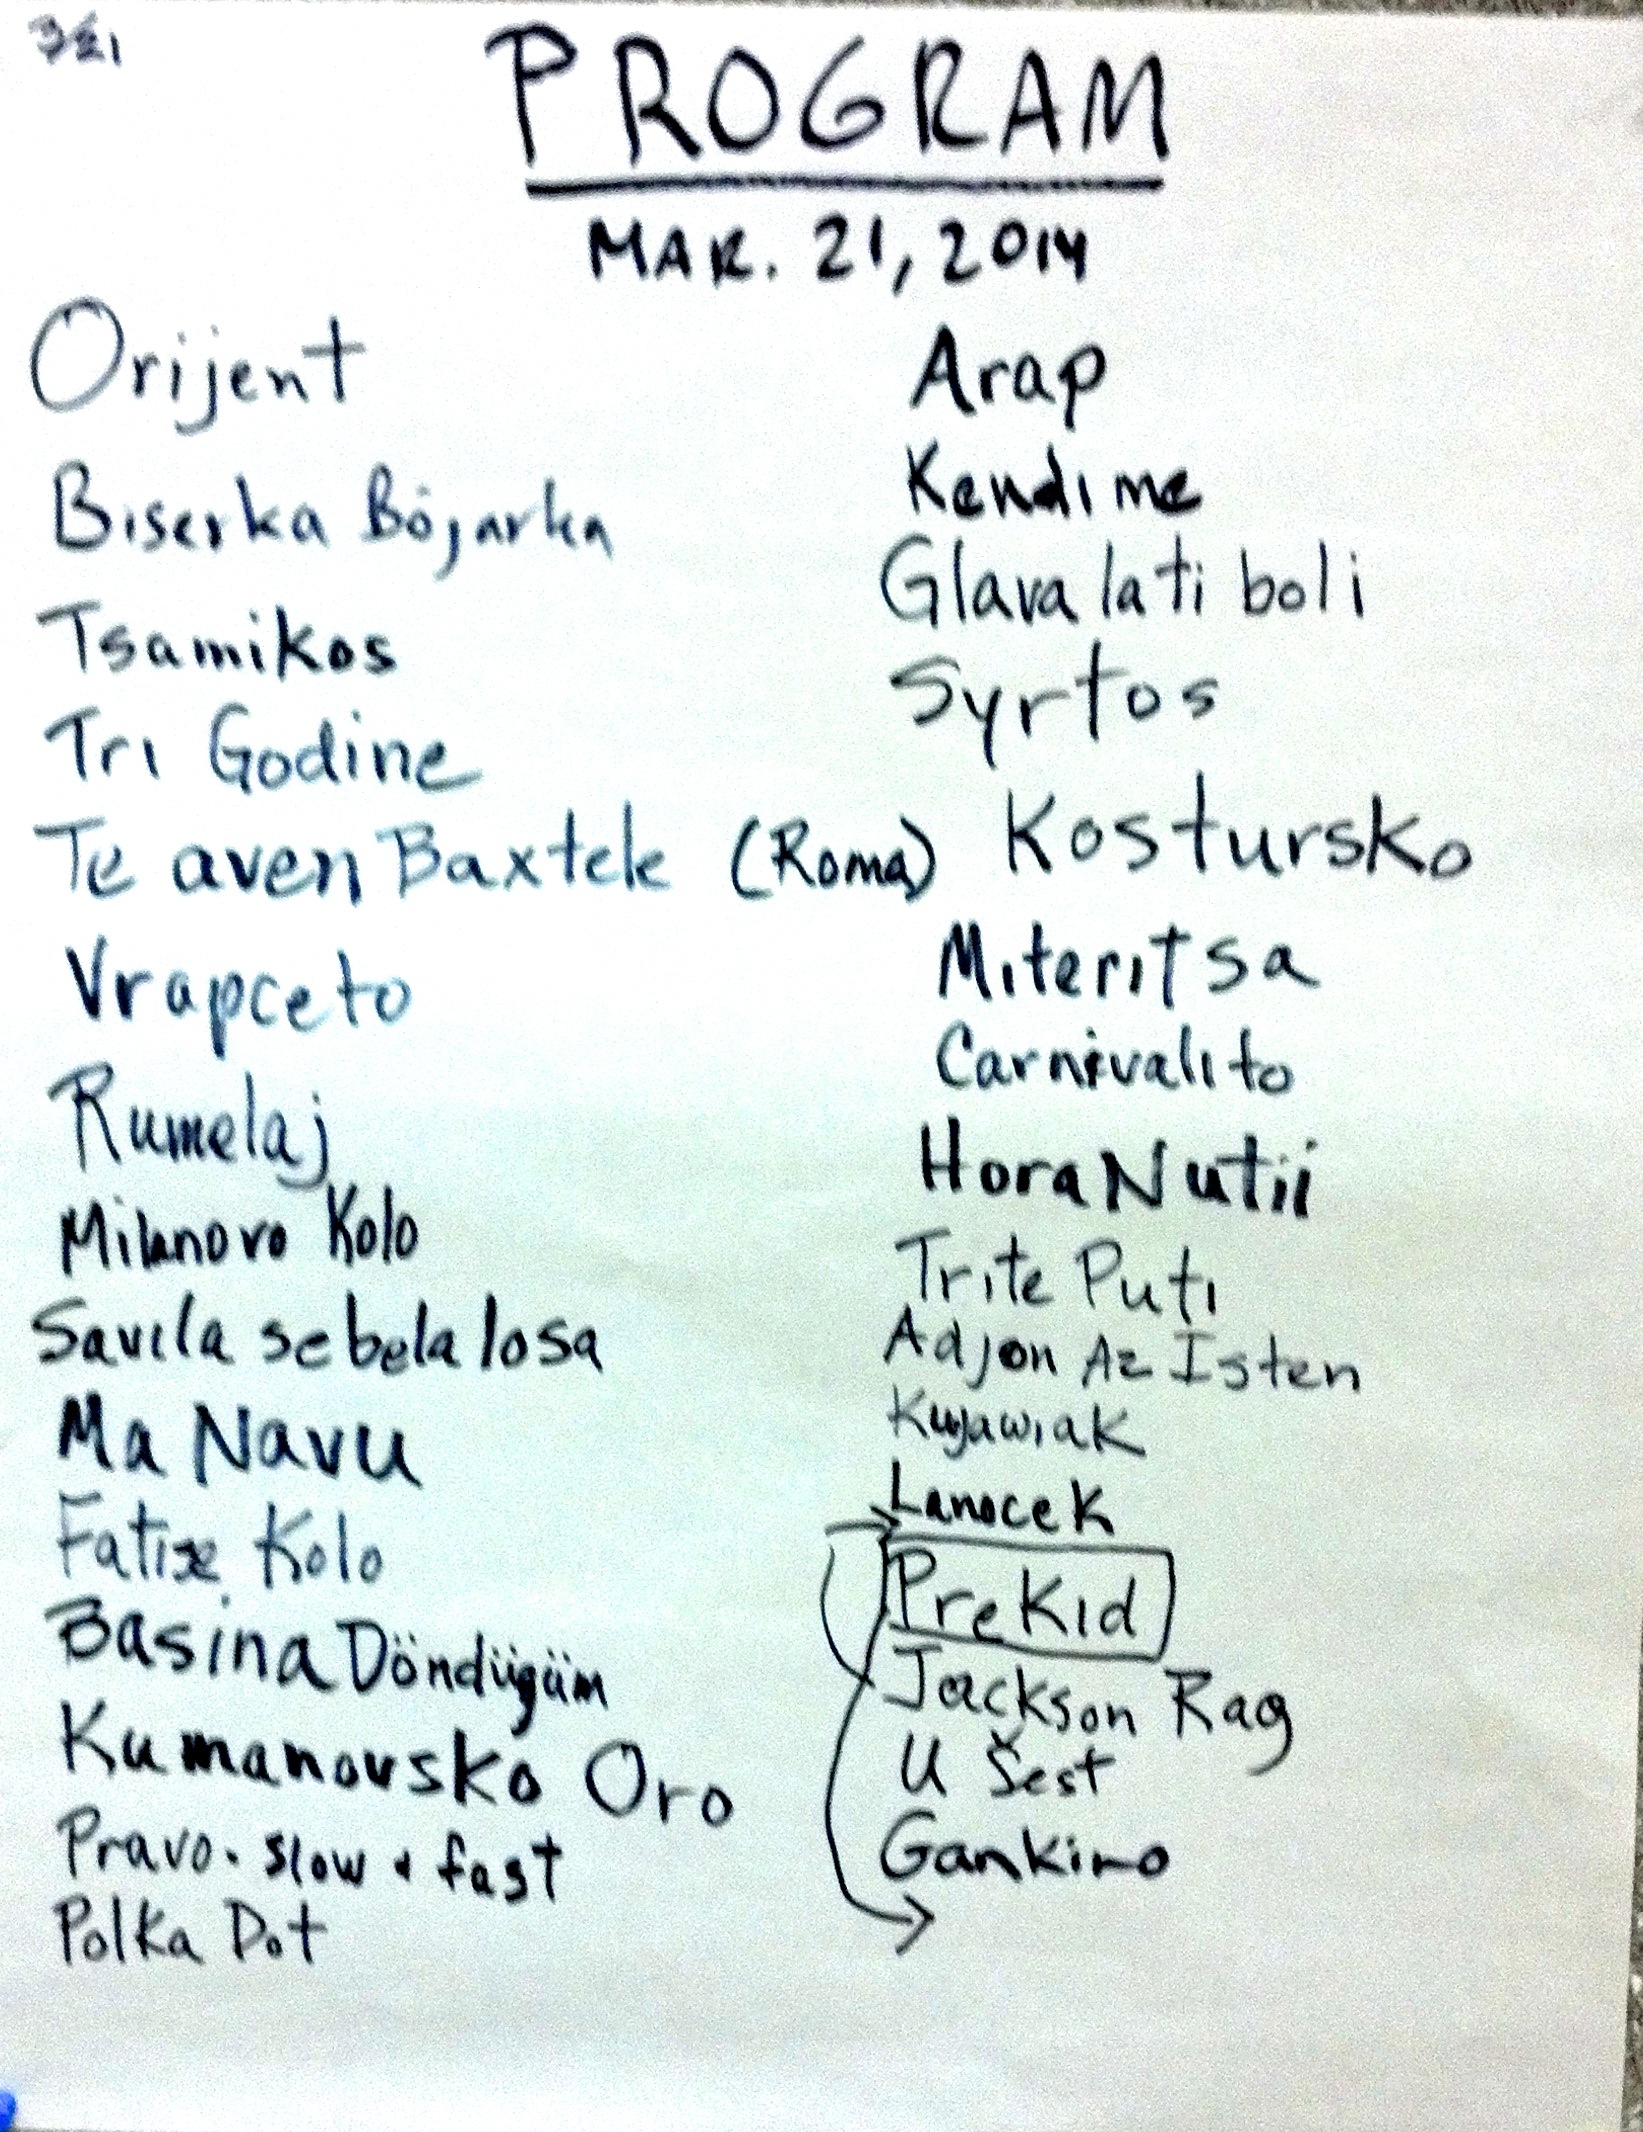 PROGRAM
MAR. 21, 2014
Orijent
Biserka Bojarka
Tsamikos
Tri Godine
Te aven Baxtele (Roma)
Vrapceto
Rumelaj
Milanovo Kolo
Savila se bela losa
Ma Navu
Fatise Kolo
Basina Döndügüm
Kumanovsko Oro
Pravo. slow + fast
Polka Dot
Arap
Kendime
Glava lati boli
Syrtos
Kostursko
Miteritsa
Carnivalito
Hora Nutii
Trite Puti
Adjon Az Isten
Kujawiak
Lanocek
PreKid
Jackson Rag
U Šest
Gankino